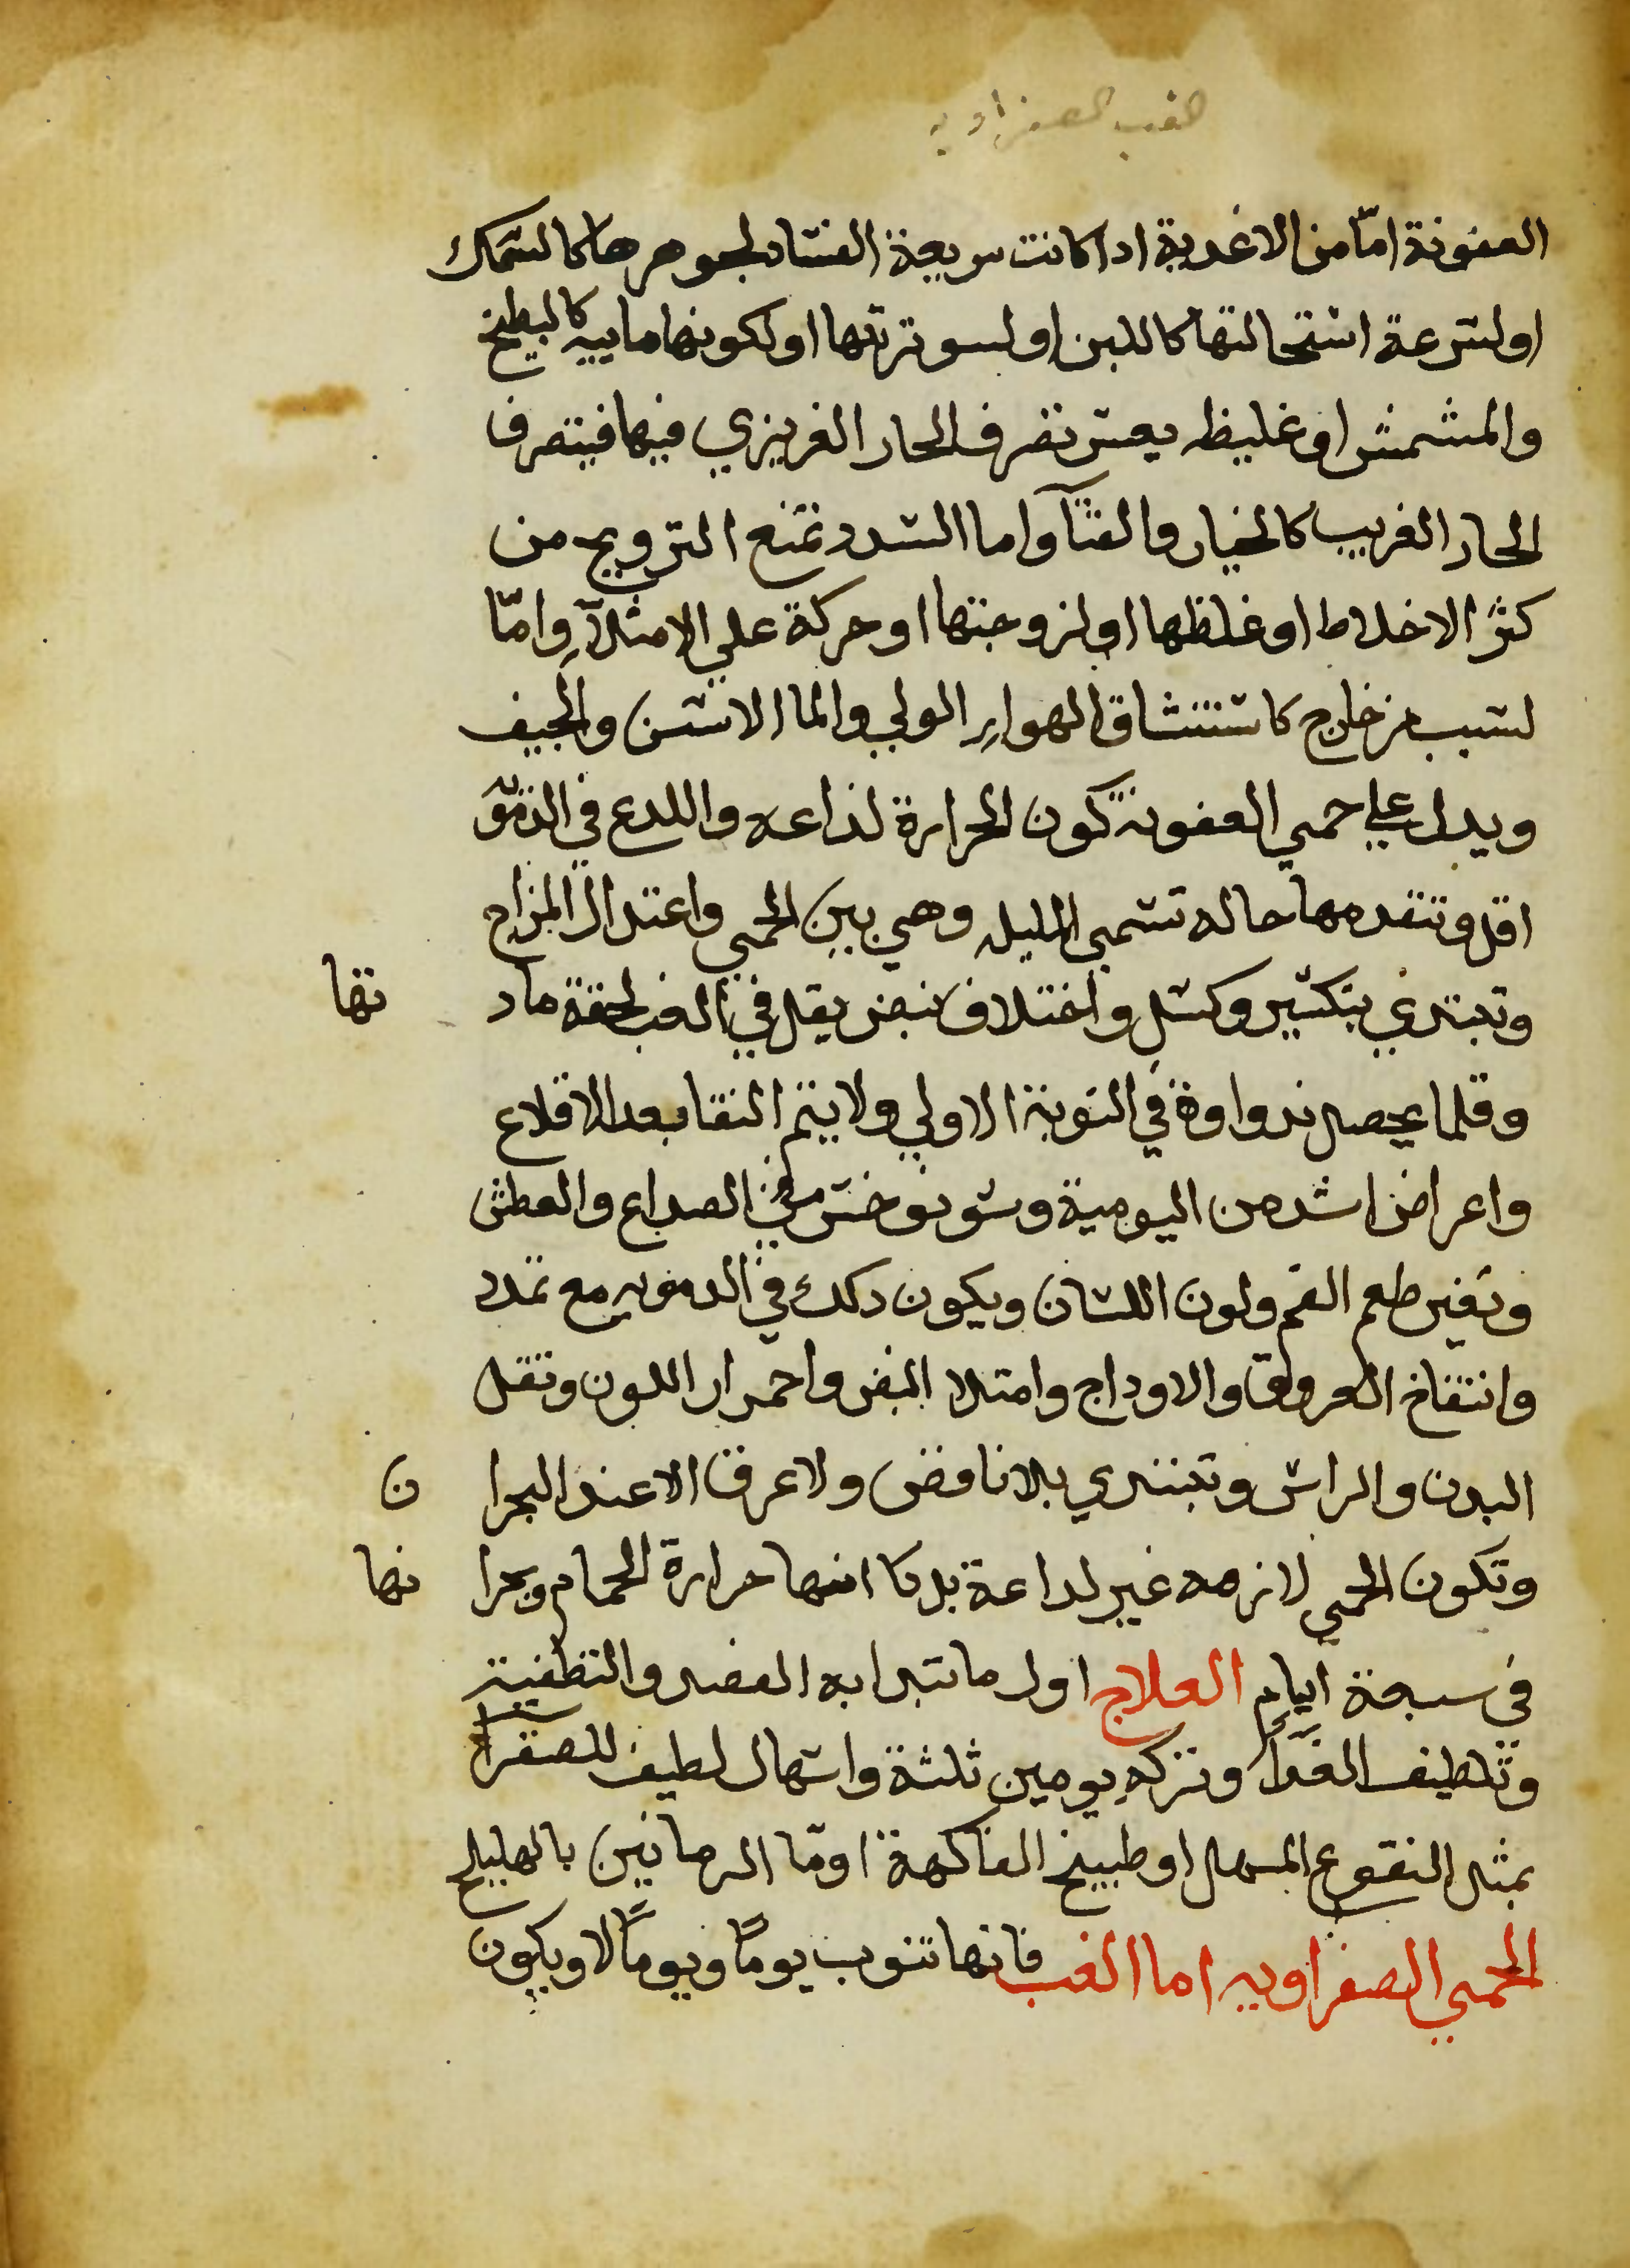 الغب الصفراويه
العفونة امّا من الاغدية ادا كانت سريعة الفساد لجوهرها كالسمك
او لسرعة استحالتها كاللبن او لسو ترتبها او لكونها ماييه كالبطيخ
والمشمش او غليظه يعسر تصرف الحار الغريزي فيها فيتصرف
الحار الغريب كالخيار والقثآ واما السدد تمنع الترويح من
كثر الاخلاط او غلظها او لزوجتها او حركة علي الامتلآ وامّا
لسبب من خارج كاستنشاق الهوا الوبي والما الاسن والجيف
ويدل علي حمي العفونة كون الحرارة لذاعه واللدع في الدق
اقل وتتقدمها حاله تسمي المليله وهي بين الحمي واعتدال المزاج
وتبتدي بتكسير وكسل واختلاف نبض يقل في الغب لخفة ماد تها
وقلما يحصل نداوة في النوبة الاولي ولا يتم النقا بعد الاقلاع
واعراض اشد من اليومية وسونوخس في الصداع والعطش
وتغير طعم الفم ولون اللسان ويكون دلك في الدمويه مع تمدد
وانتفاخ العروق والاوداج وامتلا النبض واحمرار اللون وثقل
البدن والراس وتبتدي بلا نافض ولا عرق الا عند البحرا ن
وتكون الحمي لازمه غير لداعة بل كانها حرارة الحمام وبحرا نها
في سبعة ايام العلاج اول ما تبدا به الفصد والتطفية
وتلطيف الغدآ وتركه يومين ثلثة واسهال لطيف للصفرآ
بمثل النقوع المسهل او طبيخ الفاكهة او مّا الرمانين بالهليلج
الحمي الصفراويه اما الغب فانها تنوب يومًا ويومًا لا ويكون